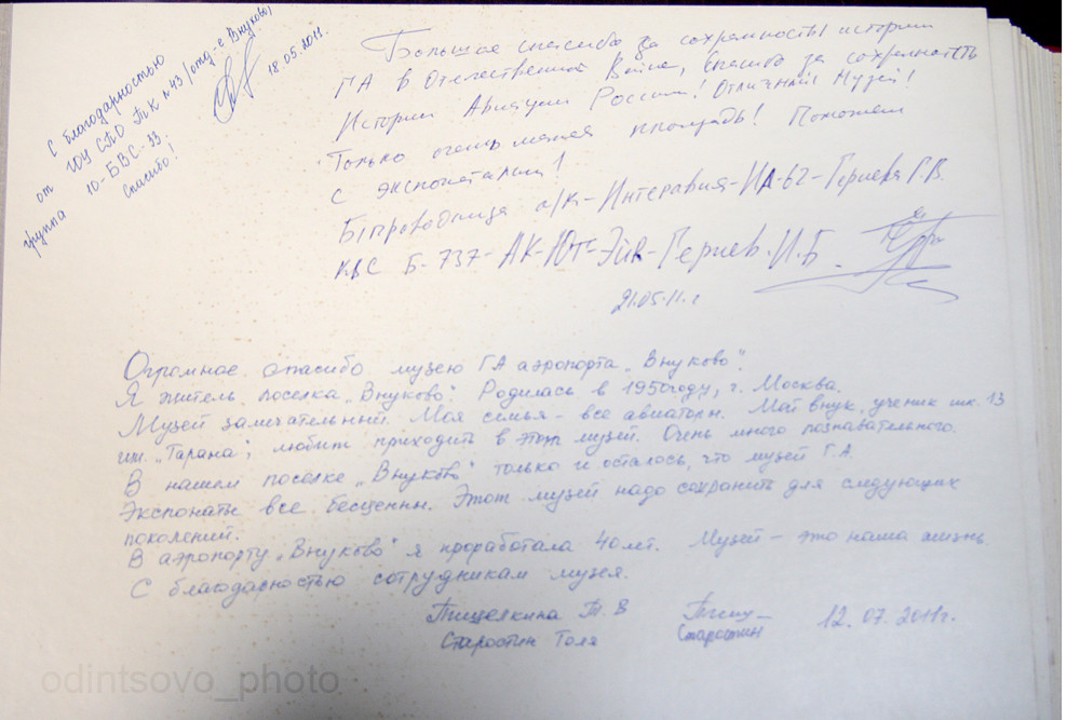 С благодарностью
от ЮУ СПО ТК №43 /отд-е Внуково/
группа 10-БВС-33.
Спасибо!
18.05.2011.
Большое спасибо за сохранность истории
ГА в Отечественной Войне, спасибо за сохранность
Истории Авиации России! Отличный Музей!
Только очень малая площадь! Поможем
с экспонатами!
Б/проводница а/к-Интеравиа-ИЛ-62-Г.В.
КВС Б-737-АК-ЮТ-Эйр- И.Б.
21.05.11.г
Огромное спасибо музею ГА аэропорта „Внуково".
Я житель поселка „Внуково". Родилась в 1950году, г. Москва.
Музей замечательный. Моя семья - все авиаторы. Мой внук, ученик шк. 13
им. „Тарана", любит приходить в этот музей. Очень много познавательного.
В нашем поселке „Внуково" только и осталось, что музей Г.А.
Экспонаты все бесценны. Этот музей надо сохранить для следующих
поколений.
В аэропорту „Внуково" я проработала 40лет. Музей - это наша жизнь.
С благодарностью сотрудникам музея.
Пищелкина Т. В
Старостин Толя Старостин 12.07.2011г.
odintsovo_photo